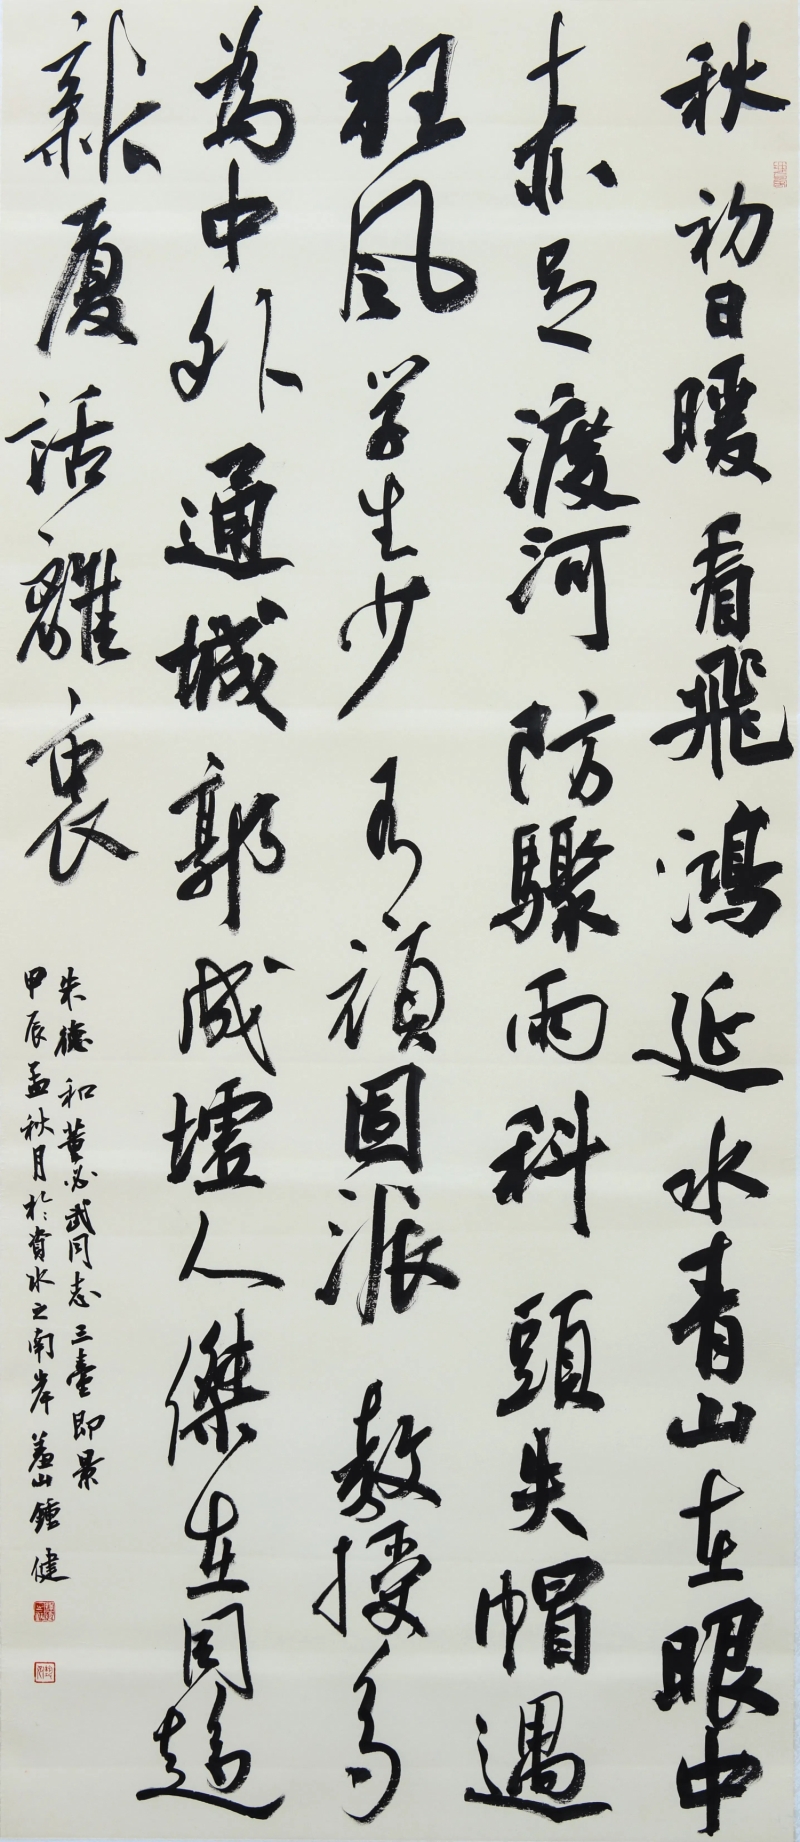 秋初日暖看飛鴻延水青山在眼中
赤足渡河防驟雨科頭失帽遇
狂風学生少有頑固派教授多
為中外通城郭成墟人傑在同趨
新廈話離衷
朱德和董必武同志三臺即景
甲辰孟秋月於資水之南岸羞山鍾健